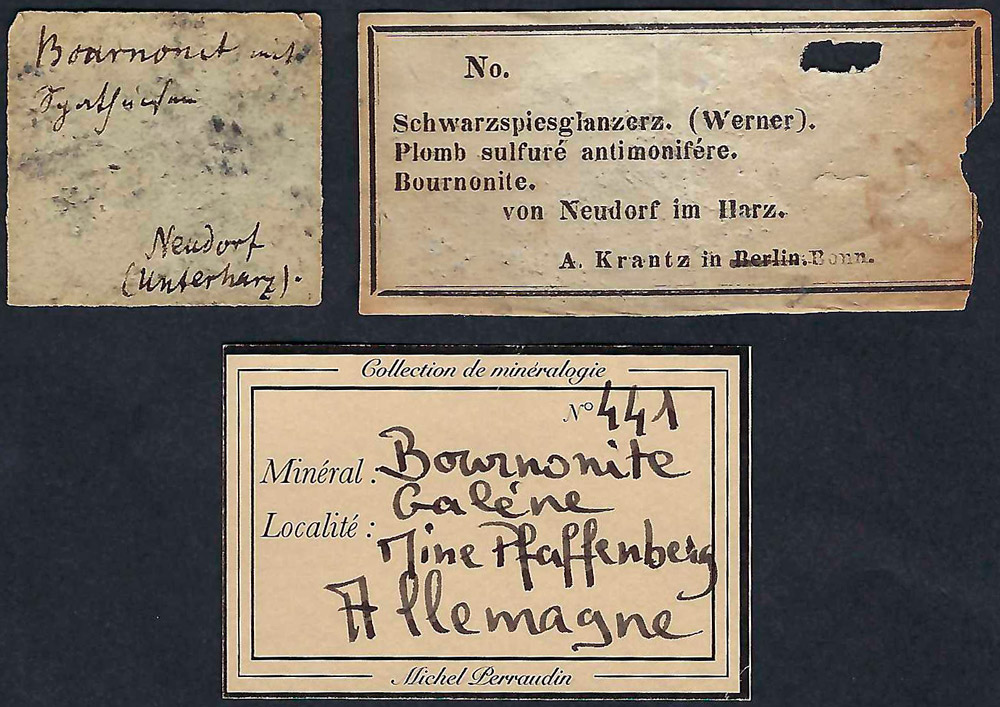 Bournonit mit
Spatheisen
Neudorf
(Unterharz).
No.
Schwarzspiesglanzerz. (Werner).
Plomb sulfuré antimonifére.
Bournonite.
von Neudorf im Harz.
A. Krantz in Berlin. Bonn.
Collection de minéralogie
N° 441
Minéral : Bournonite
Galéne
Localité : Mine Pfaffenberg
Allemagne
Michel Perraudin